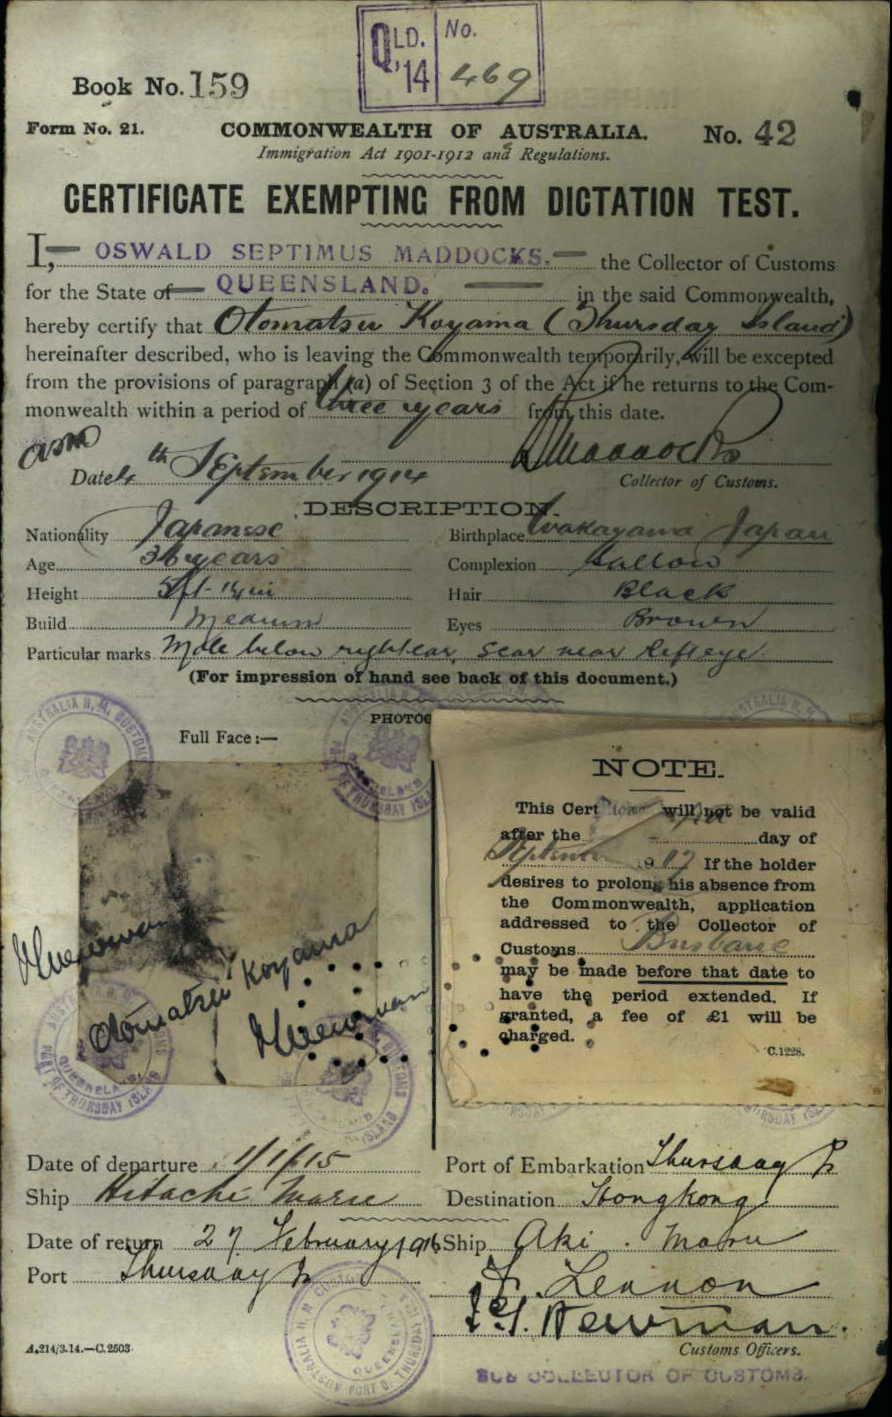 QLD. '14 No. 469
Book No. 159
Form No. 21. COMMONWEALTH OF AUSTRALIA. No. 42
Immigration Act 1901-1912 and Regulations.
CERTIFICATE EXEMPTING FROM DICTATION TEST.
I, OSWALD SEPTIMUS MADDOCKS. the Collector of Customs
for the State of QUEENSLAND. in the said Commonwealth,
hereby certify that Otomatsu Koyama (Thursday Island)
hereinafter described, who is leaving the Commonwealth temporarily, will be excepted
from the provisions of paragraph (a) of Section 3 of the Act if he returns to the Com-
monwealth within a period of three years from this date.
Maddocks
Date 4th September 1914 Collector of Customs.
DESCRIPTION.
Nationality Japanese Birthplace Wakayama Japan
Age 36 years Complexion Sallow
Height 5ft- Hair Black
Build Medium Eyes Brown
Particular marks Mole below right ear, Scar near left eye.
(For impression of hand see back of this document.)
PHOTOG
Full Face:—
NOTE.
This Cert will not be valid
after the day of
September 1917 If the holder
desires to prolong his absence from
the Commonwealth, application
addressed to the Collector of
Customs Brisbane
may be made before that date to
have the period extended. If
granted, a fee of £1 will be
charged.
C.1228.
Otomatsu Koyama
Date of departure 1/1/15 Port of Embarkation Thursday Is
Ship Hitachi Maru Destination Hongkong
Date of return 27 February 1916 Ship Aki Maru
Port Thursday Is
F. Lennon
Newman.
A.214/3.14.—C.2503 Customs Officers.
SUB COLLECTOR OF CUSTOMS.